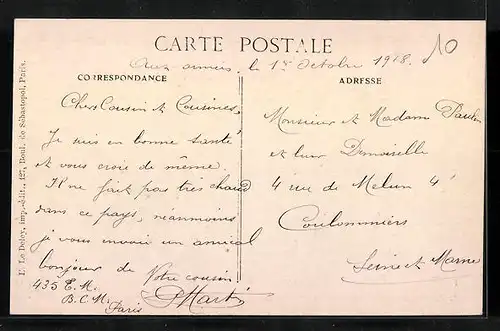 CARTE POSTALE
Aux armées, le 1er Octobre 1918.
10
CORRESPONDANCE
Chers Cousin et Cousines,
Je suis en bonne santé
et vous croie de même.
Il ne fait pas très chaud
dans ce pays, néanmoins
je vous envoie un amical
bonjour de Votre cousin
435 E. M.
B. C. M.
Paris
PMartin
ADRESSE
Monsieur et Madame Paulin
et leur Demoiselle
4 rue de Melun 4
Coulommiers
Seine et Marne
E. Le Deley, imp.-édit., 127, Boul. de Sébastopol, Paris.